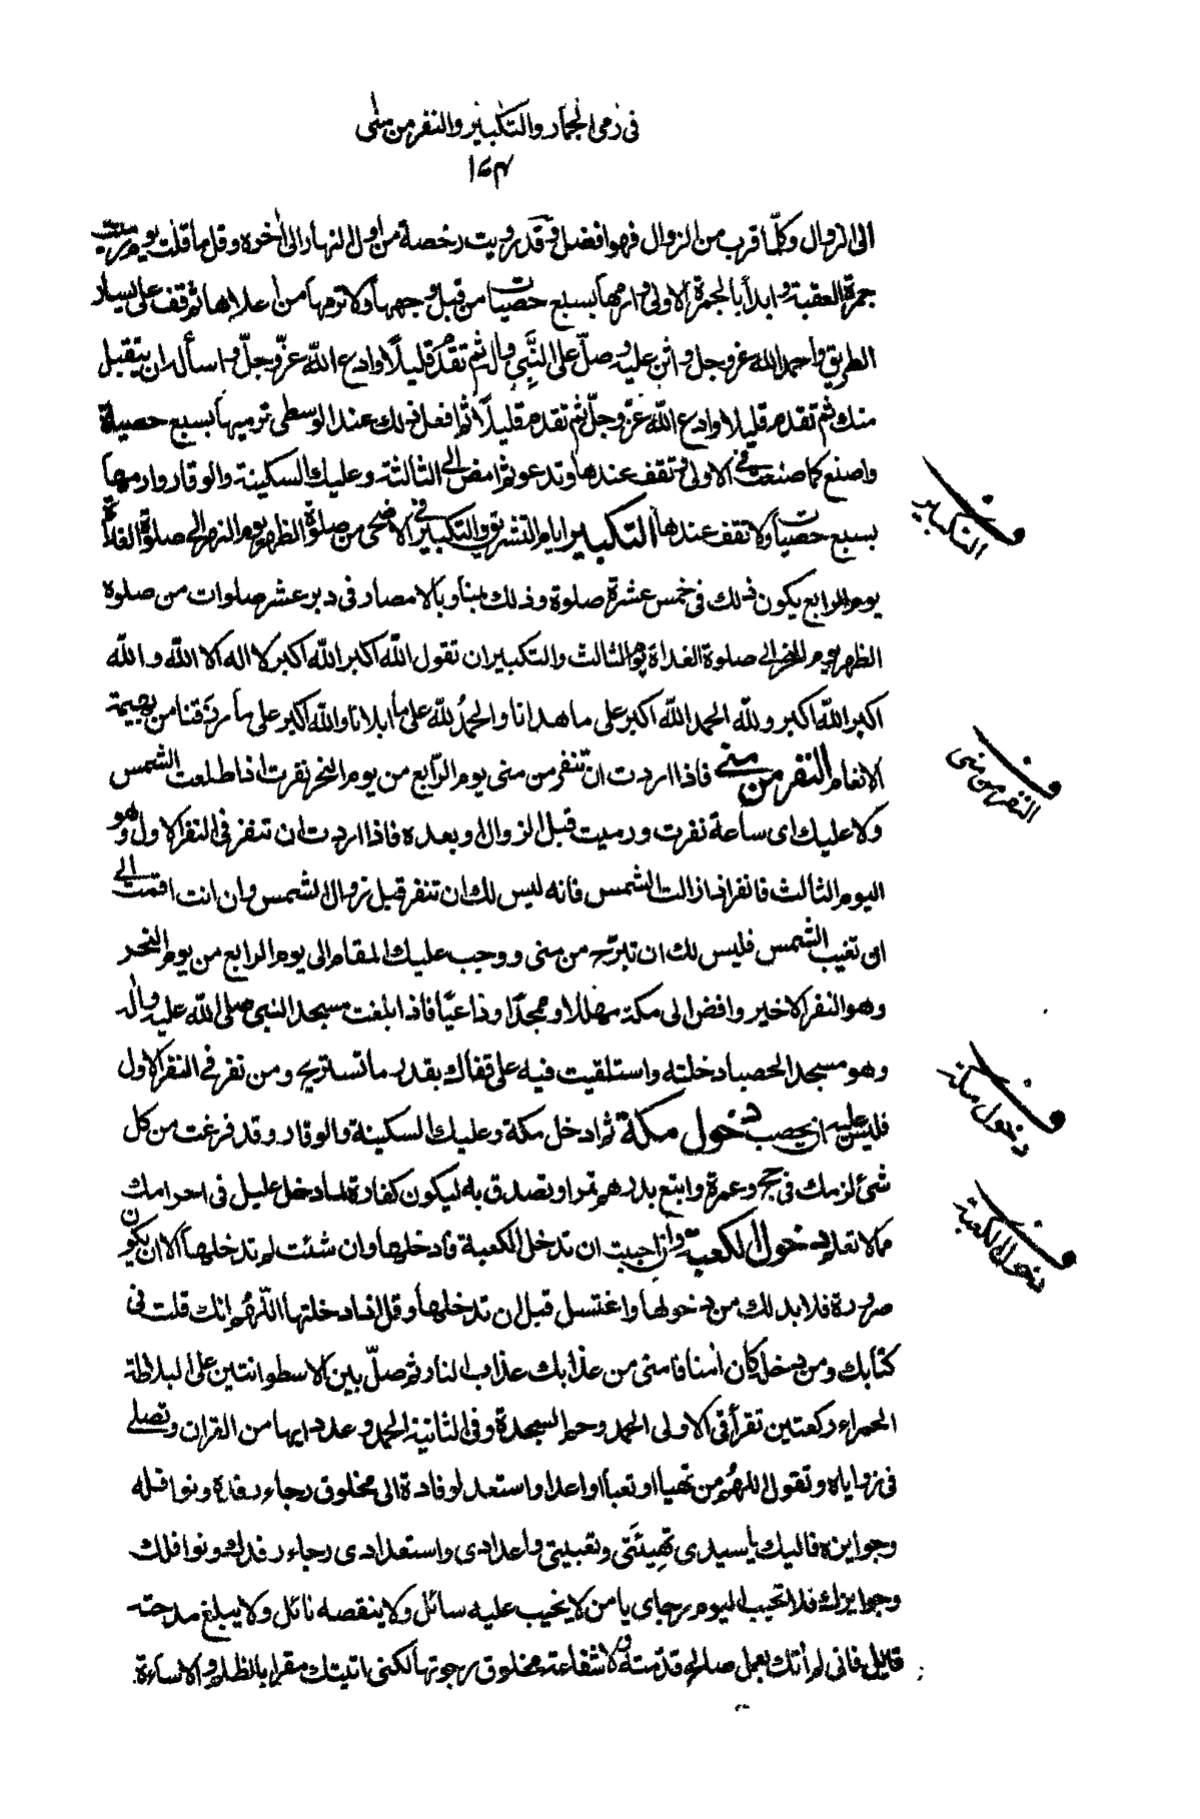 فى رمى الجمار والتكبير والنفر من منى
١٧٣
الى الزوال وكلّما قرب من الزوال فهو افضل وقد رويت رخصة من اول النهار الى اخره وقل ما قلت يوم رميت
جمرة العقبة وابدأ بالجمرة الاولى وارمها بسبع حصيات من قبل وجهها ولا ترمها من اعلاها ثم قف على يسار
الطريق واحمد الله عز وجل واثن عليه وصلّ على النَّبِي واله ثم تقدم قليلًا وادع اللّه عزّ وجلّ واسأله ان يتقبل
منك ثم تقدم قليلا وادع اللّه عزّ وجلّ ثم تقدم قليلًا ثم افعل ذلك عند الوسطى ترميها بسبع حصيات
واصنع كما صنعت فى الاولى وتقف عندها وتدعو ثم امض الى الثالثة وعليك السكينة والوقار وارمها
بسبع حصيات ولا تقف عندها التكبير ايام التشريق والتكبير فى الاضحى من صلوة الظهر يوم النحر الى صلوة الغداة
يوم الرابع يكون ذلك فى خمس عشرة صلوة وذلك بمنا وبالامصار فى دبر عشر صلوات من صلوة
الظهر يوم النحر الى صلوة الغداة يوم الثالث والتكبير ان تقول اللّه اكبر اللّه اكبر لا اله الا اللّه واللّه
اكبر اللّه اكبر وللّه الحمد اللّه اكبر على ما هدانا والحمدُ للّه على ما ابلانا واللّه اكبر على ما رزقنا من بهيمة
الانعام النفر من منى فاذا اردت ان تنفر من منى يوم الرّابع من يوم النحر نفرت اذا طلعت الشمس
ولا عليك اى ساعة نفرت ورميت قبل الزوال او بعده فاذا اردت ان تنفر فى النفر الاول وهو
اليوم الثالث فانفر اذا زالت الشمس فانه ليس لك ان تنفر قبل زوال الشمس وان انت اقمت الى
ان تغيب الشمس فليس لك ان تبرح من منى ووجب عليك المقام الى يوم الرابع من يوم النحر
وهو النفر الاخير وافض الى مكة مهللا وممجدًا وداعيًا فاذا بلغت مسجد النبى صلى اللّه عليه واله
وهو مسجد الحصبا دخلته واستلقيت فيه على قفاك بقدر ما تستريح ومن نفر فى النفر الاول
فليس عليه ان يحصب دخول مكة ثم ادخل مكة وعليك السكينة والوقار وقد فرغت من كل
شئ لزمك فى حج وعمرة وابتع بدرهم تمرا وتصدق به ليكون كفارة لما دخل عليك فى احرامك
مما لا تعلم دخول الكعبة وان احببت ان تدخل الكعبة فادخلها وان شئت لم تدخلها الا ان يكون
صرورة فلا بد لك من دخولها واغتسل قبل ان تدخلها وقل اذا دخلتها اللّهُم انك قلت فى
كتابك ومن دخله كان امنا فامنى من عذابك عذاب النار ثم صلّ بين الاسطوانتين على البلاطة
الحمراء ركعتين تقرأ فى الاولى الحمد وحم السجدة وفى الثانية الحمد وعدد ايها من القران وتصلى
فى زواياه وتقول اللهُم من تهيأ او تعبأ او اعد او استعد لوفادة الى مخلوق رجاء رفده ونوافله
وجوايزه فاليك يا سيدى تهيئَتى وتعبيتى واعدادى واستعدادى رجاء رفدك ونوافلك
وجوايزك فلا تخيب اليوم رجاى يا من لا يخيب عليه سائل ولا ينقصه نائل ولا يبلغ مدحته
قائل فانى لم أتك بعمل صالح قدمته ولا شفاعة مخلوق رجوتها لكنى اتيتك مقرا بالظلم والاساءة
التكبير
النفر من منى
دخول مكة
دخول الكعبة